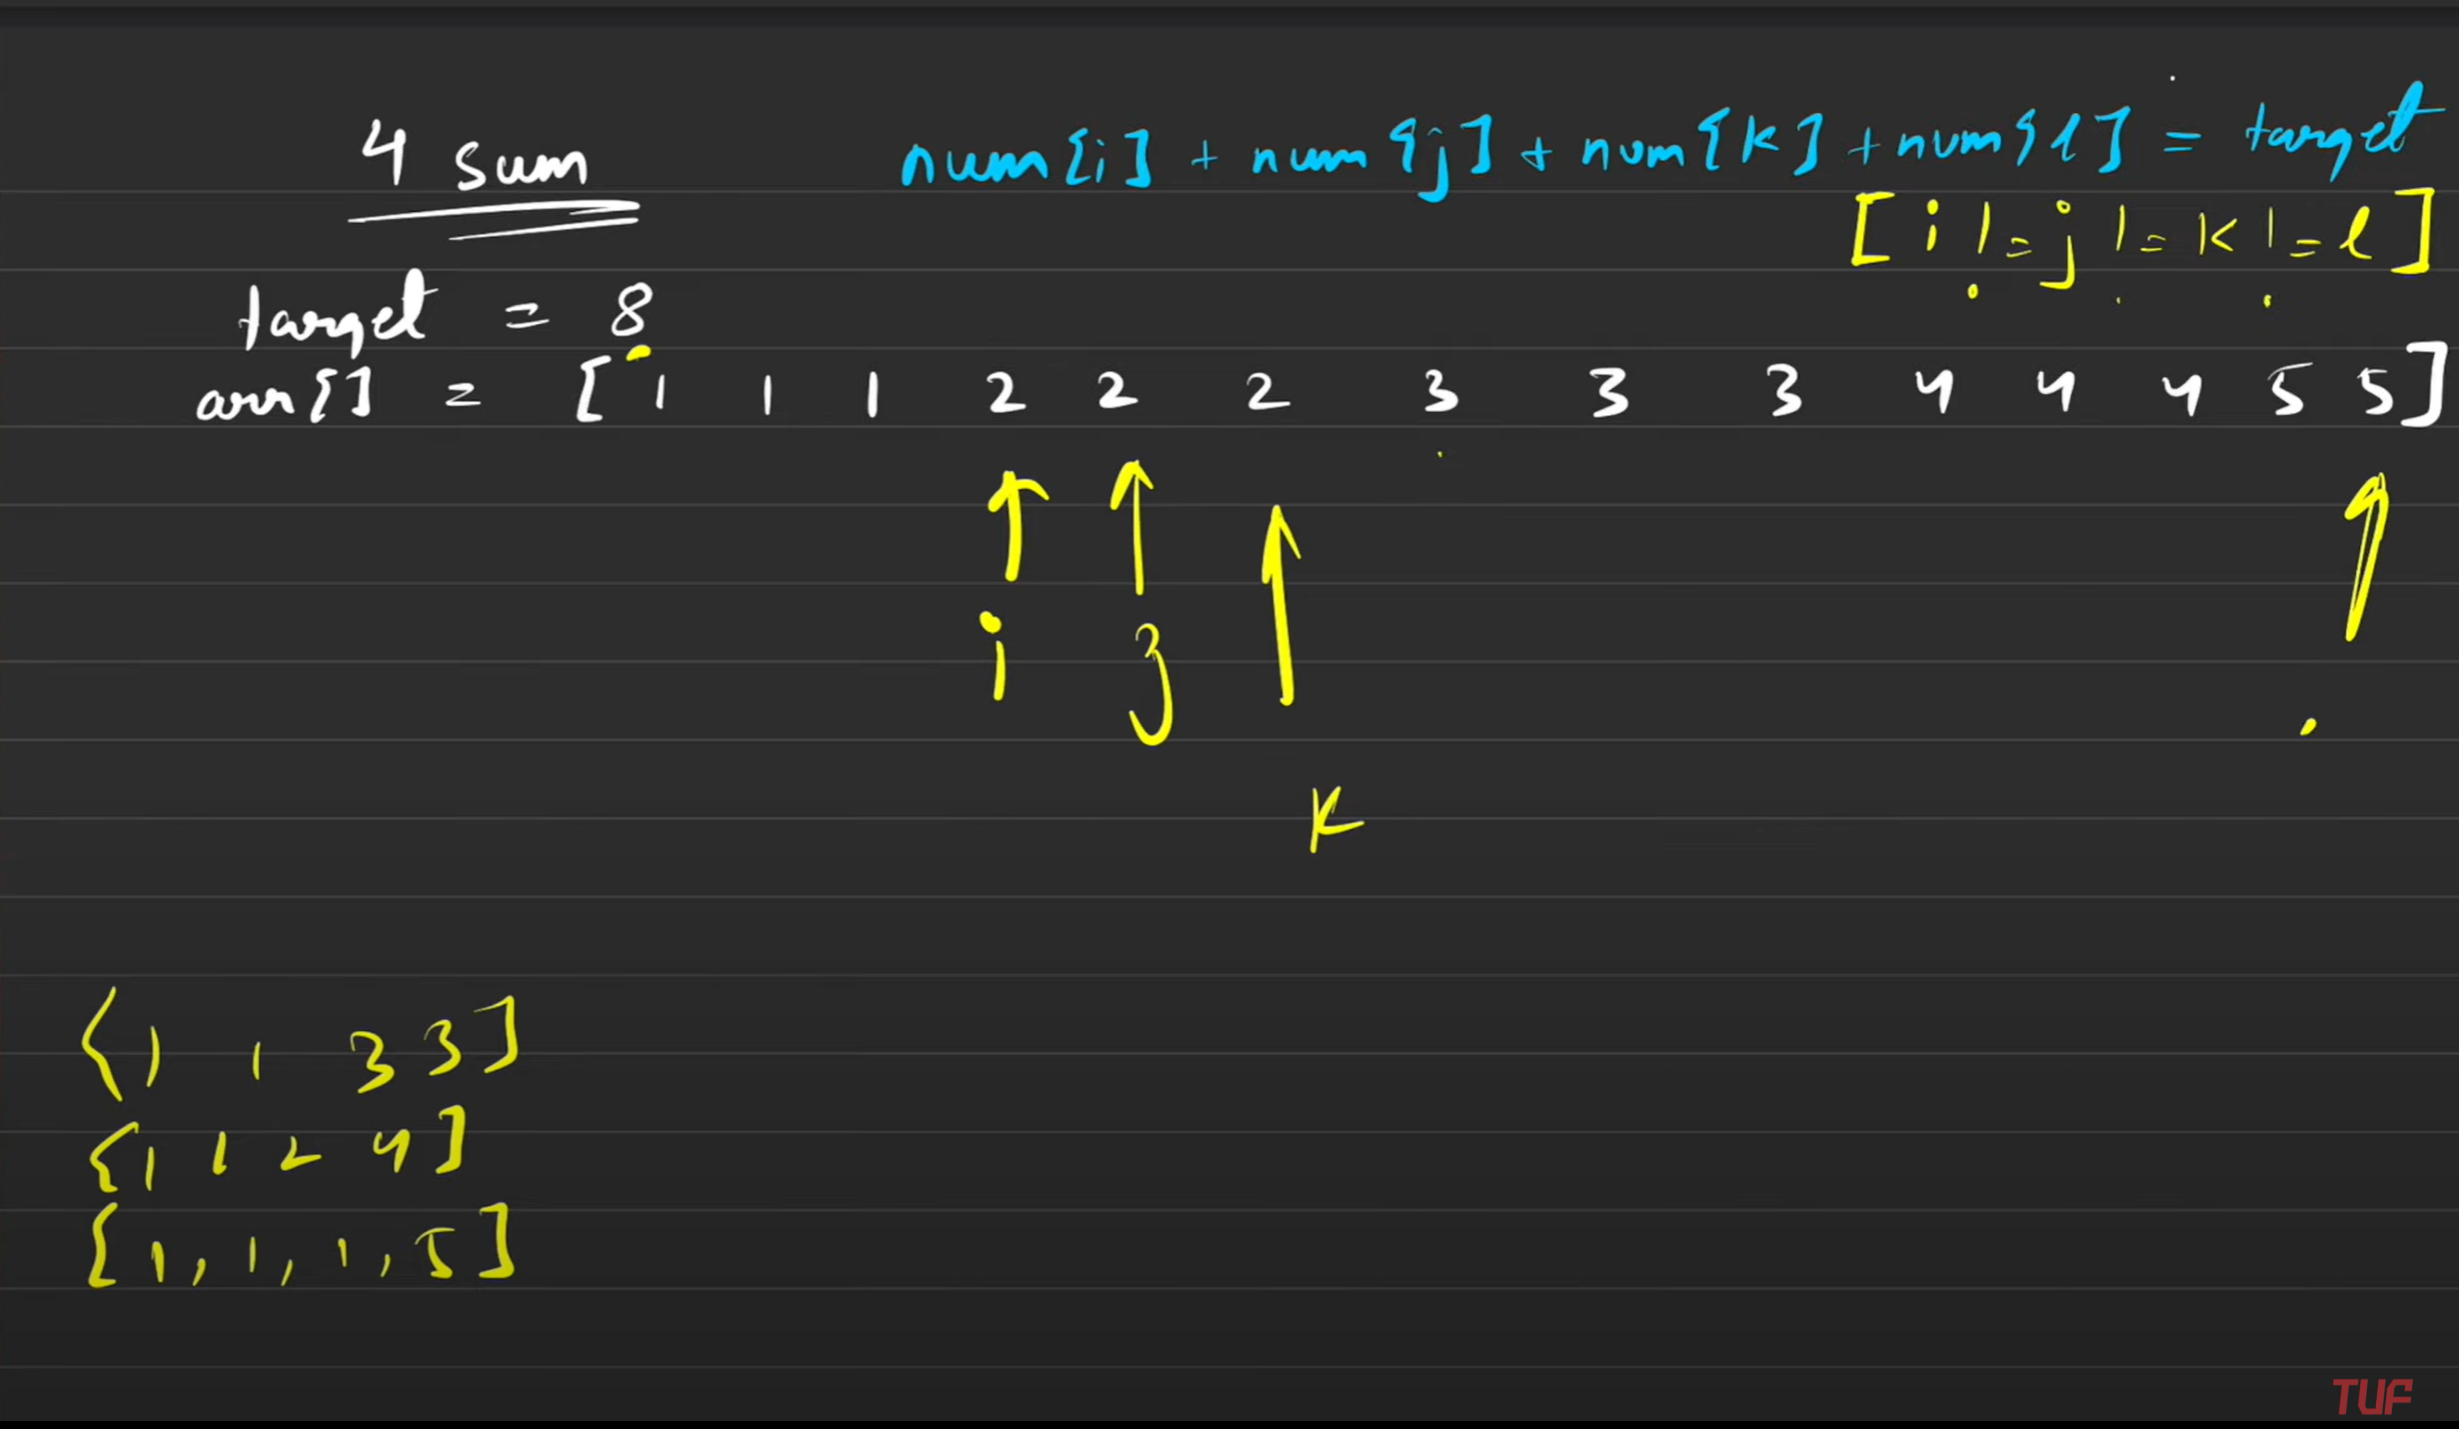 4 sum
num[i] + num[j] + num[k] + num[l] = target
[i != j != k != l]
target = 8
arr[] = [1 1 1 2 2 2 3 3 3 4 4 4 5 5]
i j
k
[1 1 3 3]
[1 1 2 4]
[1, 1, 1, 5]
TUF